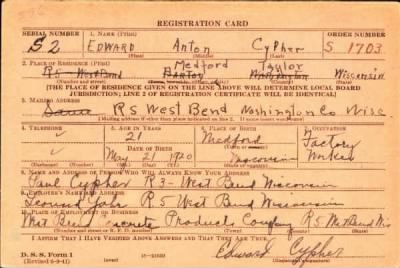 REGISTRATION CARD
SERIAL NUMBER 1. NAME (Print) ORDER NUMBER
52 EDWARD Anton Cypher S 1703
(First) (Middle) (Last)
2. PLACE OF RESIDENCE (Print) Medford Taylor
R5 West Bend BARTON Washington Wisconsin
(Number and street) (Town, township, village, or city) (County) (State)
[THE PLACE OF RESIDENCE GIVEN ON THE LINE ABOVE WILL DETERMINE LOCAL BOARD
JURISDICTION; LINE 2 OF REGISTRATION CERTIFICATE WILL BE IDENTICAL]
3. MAILING ADDRESS
Same R5 West Bend Washington Co Wisc
[Mailing address if other than place indicated on line 2. If same insert word same]
4. TELEPHONE 5. AGE IN YEARS 6. PLACE OF BIRTH 7. OCCUPATION
21 Medford Factory
DATE OF BIRTH (Town or county)
May 21 1920 Wisconsin Worker
(Exchange) (Number) (Mo.) (Day) (Yr.) (State or country)
8. NAME AND ADDRESS OF PERSON WHO WILL ALWAYS KNOW YOUR ADDRESS
Paul Cypher R3- West Bend Wisconsin
9. EMPLOYER'S NAME AND ADDRESS
Leonard R5 West Bend Wisconsin
10. PLACE OF EMPLOYMENT OR BUSINESS
West Bend Concrete Products Company R5 West Bend Wis
(Number and street or R. F. D. number) (Town) (County) (State)
I AFFIRM THAT I HAVE VERIFIED ABOVE ANSWERS AND THAT THEY ARE TRUE.
D. S. S. Form 1
(Revised 6-9-41) Edward Cypher